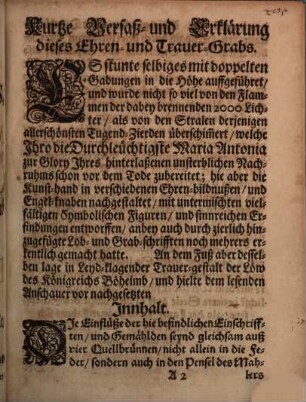 Kurtze Verfaß- und Erklärung
dieses Ehren- und Trauer-Grabs.
ES stunte selbiges mit doppelten
Gadungen in die Höhe auffgeführet/
und wurde nicht so viel von den Flam-
men der dabey brennenden 2000 Lich-
ter/ als von den Stralen derjenigen
allerschönsten Tugend-Zierden überschiffert/ welche
Ihro die Durchleüchtigste Maria Antonia
zur Glory Ihres hinterlaßenen unsterblichen Nach-
ruhms schon vor dem Tode zubereitet; hie aber die
Kunst-hand in verschiedenen Ehren-bildnußen/ und
Engel-knaben nachgestaltet/ mit untermischten viel-
fältigen Symbolischen Figuren/ und sinnreichen Er-
findungen entworffen/ anbey auch durch zierlich hin-
zugefügte Lob- und Grab-schrifften noch mehrers er-
kentlich gemacht hatte. An dem Fuß aber dessel-
ben lage in Leyd-klagender Trauer-gestalt der Löw
des Königreichs Böheimb/ und hielte dem lesenden
Anschauer vor nachgesetzten
Innhalt.
DIe Einflüße der hie befindlichen Einschriff-
ten/ und Gemählden seynd gleichsam auß
vier Quellbrünnen/ nicht allein in die Fe-
der/ sondern auch in den Pensel des Mah-
A 2 lers